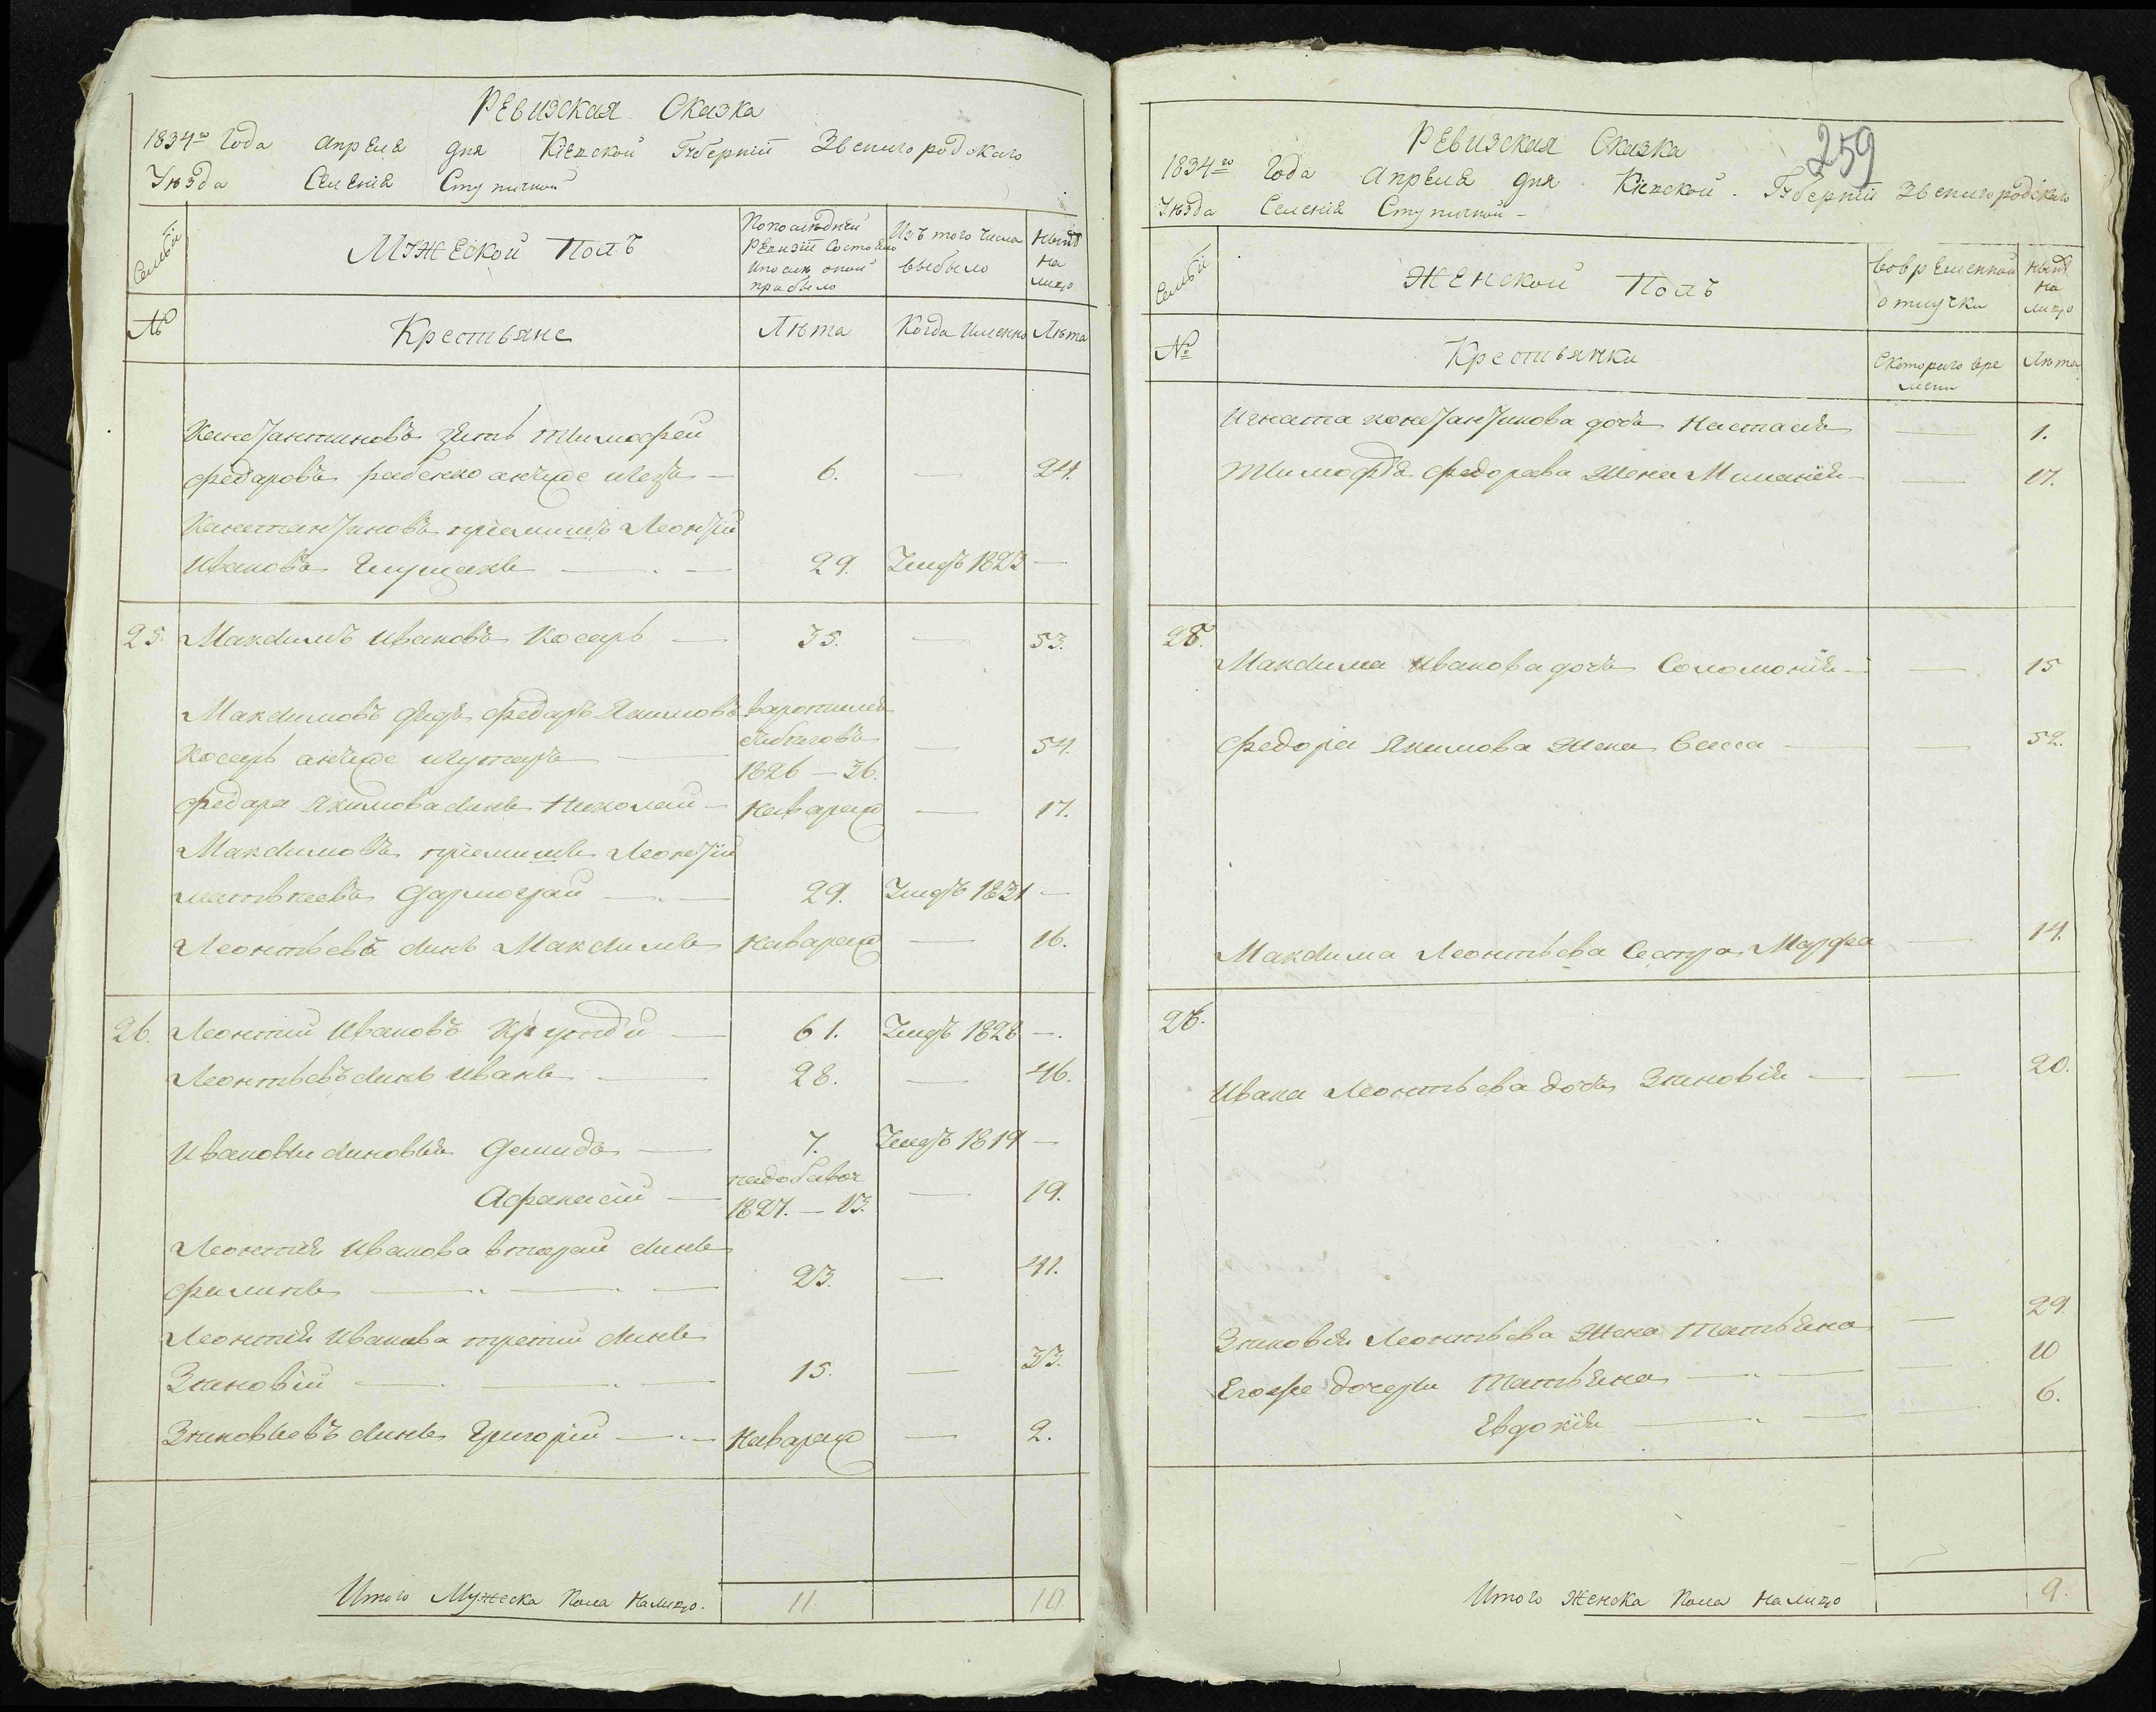 Ревизская Сказка
1834го Года Апреля дня Кіевской Губерніи Звенигородского
Уѣзда Селенія Ступичной
Семьи
Мужеской Полъ
По последней Ревизіи Состояло и после оной прибыло
Изъ того числа выбыло
Нынѣ на лицо
№
Крестьяне
Лѣта
Когда Именно
Лѣта
Тимофей
Федоровъ 6. — 24.
Леонтій
Ивановъ 29. Умеръ 1823 —
25. Максимъ Ивановъ Косарь — 35. — 53.
Максимовъ Федоръ Якимовъ
Косарь 1826 — 36. — 54.
Федора Якимова синъ Николай — Новорож — 17.
Максимовъ пріемишъ Леонтій
29. Умеръ 1831 —
Леонтьевъ синъ Максимъ Новорож — 16.
26. Леонтий Ивановъ — 61. Умеръ 1828 —.
Леонтьевъ синъ Иванъ — 28. — 46.
Ивановы синовья Демидъ — 7. Умеръ 1819 —
Афанасій — 1827. — 13. — 19.
Леонтія Иванова второй синъ
Филипъ — 23. — 41.
Леонтія Иванова третий синъ
Зиновій — 15. — 33.
Зиновьевъ синъ Григорій — Новорож — 2.
Итого Мужеска Пола Налицо. 11. 10
259
Ревизская Сказка
1834го Года Апреля дня Кіевской Губерніи Звенигородского
Уѣзда Селенія Ступичной —
Семьи
Женской Полъ
Во временной отлучки
Нынѣ на лицо
№
Крестьянки
С котораго времени
Лѣта
Игната Константинова дочь Настасія — 1.
Тимофѣя Федорова Жена — 17.
25.
Максима Иванова дочь Соломонія — — 15
Федора Якимова Жена Васса — — 52.
Максима Леонтьева Сестра Марфа — 14.
26.
Ивана Леонтьева дочь Зиновія — — 20.
Зиновія Леонтьева Жена Татьяна — 29.
Егоже дочери Татьяна — — 10
Евдокія — — 6.
Итого Женска Пола Налицо 9.